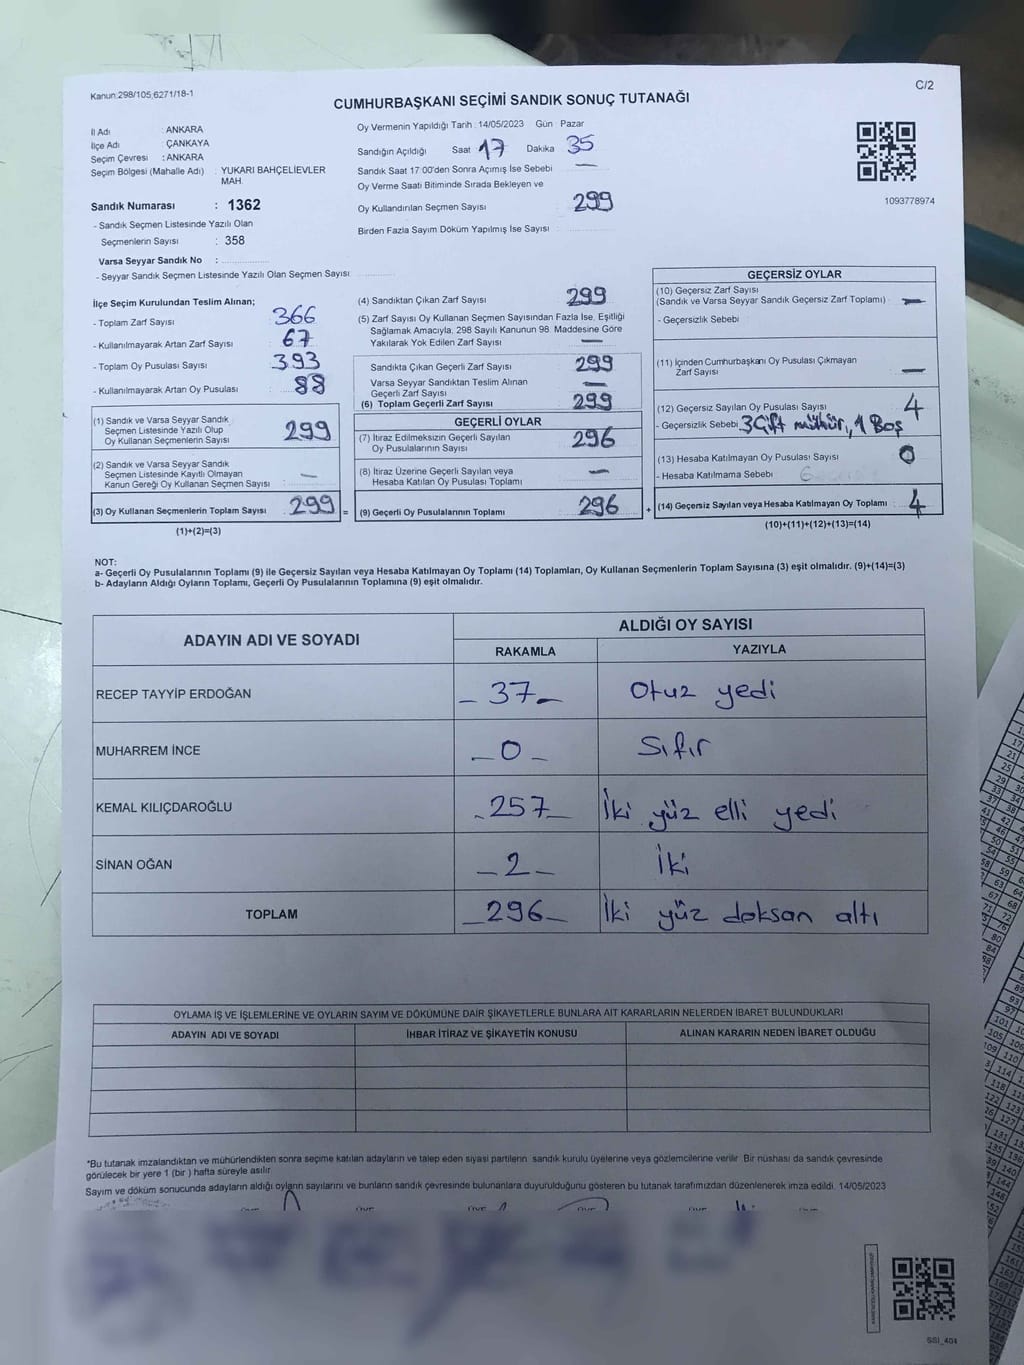 Kanun:298/105;6271/18-1
C/2
CUMHURBAŞKANI SEÇİMİ SANDIK SONUÇ TUTANAĞI
İl Adı : ANKARA
İlçe Adı : ÇANKAYA
Seçim Çevresi : ANKARA
Seçim Bölgesi (Mahalle Adı) : YUKARI BAHÇELİEVLER
MAH.
Sandık Numarası : 1362
- Sandık Seçmen Listesinde Yazılı Olan
Seçmenlerin Sayısı : 358
Varsa Seyyar Sandık No :
- Seyyar Sandık Seçmen Listesinde Yazılı Olan Seçmen Sayısı
Oy Vermenin Yapıldığı Tarih : 14/05/2023 Gün : Pazar
Sandığın Açıldığı Saat 17 Dakika 35
Sandık Saat 17:00'den Sonra Açımış İse Sebebi —
Oy Verme Saati Bitiminde Sırada Bekleyen ve
Oy Kullandırılan Seçmen Sayısı 299
Birden Fazla Sayım Döküm Yapılmış İse Sayısı
1093778974
İlçe Seçim Kurulundan Teslim Alınan;
- Toplam Zarf Sayısı 366
- Kullanılmayarak Artan Zarf Sayısı 67
- Toplam Oy Pusulası Sayısı 393
- Kullanılmayarak Artan Oy Pusulası 88
(1) Sandık ve Varsa Seyyar Sandık
Seçmen Listesinde Yazılı Olup
Oy Kullanan Seçmenlerin Sayısı 299
(2) Sandık ve Varsa Seyyar Sandık
Seçmen Listesinde Kayıtlı Olmayan
Kanun Gereği Oy Kullanan Seçmen Sayısı —
(3) Oy Kullanan Seçmenlerin Toplam Sayısı 299 =
(1)+(2)=(3)
(4) Sandıktan Çıkan Zarf Sayısı 299
(5) Zarf Sayısı Oy Kullanan Seçmen Sayısından Fazla İse, Eşitliği
Sağlamak Amacıyla, 298 Sayılı Kanunun 98. Maddesine Göre
Yakılarak Yok Edilen Zarf Sayısı —
Sandıkta Çıkan Geçerli Zarf Sayısı 299
Varsa Seyyar Sandıktan Teslim Alınan
Geçerli Zarf Sayısı —
(6) Toplam Geçerli Zarf Sayısı 299
GEÇERLİ OYLAR
(7) İtiraz Edilmeksizin Geçerli Sayılan
Oy Pusulalarının Sayısı 296
(8) İtiraz Üzerine Geçerli Sayılan veya
Hesaba Katılan Oy Pusulası Toplamı —
(9) Geçerli Oy Pusulalarının Toplamı 296 +
GEÇERSİZ OYLAR
(10) Geçersiz Zarf Sayısı
(Sandık ve Varsa Seyyar Sandık Geçersiz Zarf Toplamı) —
- Geçersizlik Sebebi
(11) İçinden Cumhurbaşkanı Oy Pusulası Çıkmayan
Zarf Sayısı —
(12) Geçersiz Sayılan Oy Pusulası Sayısı 4
- Geçersizlik Sebebi 3 Çift mühür, 1 Boş
(13) Hesaba Katılmayan Oy Pusulası Sayısı 0
- Hesaba Katılmama Sebebi
(14) Geçersiz Sayılan veya Hesaba Katılmayan Oy Toplamı 4
(10)+(11)+(12)+(13)=(14)
NOT:
a- Geçerli Oy Pusulalarının Toplamı (9) ile Geçersiz Sayılan veya Hesaba Katılmayan Oy Toplamı (14) Toplamları, Oy Kullanan Seçmenlerin Toplam Sayısına (3) eşit olmalıdır. (9)+(14)=(3)
b- Adayların Aldığı Oyların Toplamı, Geçerli Oy Pusulalarının Toplamına (9) eşit olmalıdır.
ADAYIN ADI VE SOYADI
ALDIĞI OY SAYISI
RAKAMLA YAZIYLA
RECEP TAYYİP ERDOĞAN – 37 – Otuz yedi
MUHARREM İNCE – 0 – Sıfır
KEMAL KILIÇDAROĞLU – 257 – İki yüz elli yedi
SİNAN OĞAN – 2 – İki
TOPLAM – 296 – İki yüz doksan altı
OYLAMA İŞ VE İŞLEMLERİNE VE OYLARIN SAYIM VE DÖKÜMÜNE DAİR ŞİKAYETLERLE BUNLARA AİT KARARLARIN NELERDEN İBARET BULUNDUKLARI
ADAYIN ADI VE SOYADI İHBAR İTİRAZ VE ŞİKAYETİN KONUSU ALINAN KARARIN NEDEN İBARET OLDUĞU
*Bu tutanak imzalandıktan ve mühürlendikten sonra seçime katılan adayların ve talep eden siyasi partilerin sandık kurulu üyelerine veya gözlemcilerine verilir. Bir nüshası da sandık çevresinde
görülecek bir yere 1 (bir) hafta süreyle asılır.
Sayım ve döküm sonucunda adayların aldığı oyların sayılarını ve bunların sandık çevresinde bulunanlara duyurulduğunu gösteren bu tutanak tarafımızdan düzenlenerek imza edildi. 14/05/2023
SSI_404